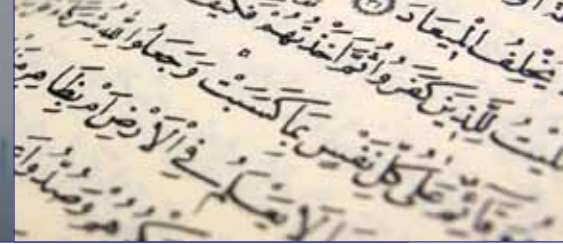 يُخْلِفُ الْمِيعَادَ ٣١
لِلَّذِينَ كَفَرُوا ثُمَّ أَخَذْتُهُمْ فَكَيْفَ
هُوَ قَائِمٌ عَلَىٰ كُلِّ نَفْسٍ بِمَا كَسَبَتْ وَجَعَلُوا لِلَّهِ شُرَكَاءَ
لَا يَعْلَمُ فِي الْأَرْضِ أَمْ بِظَاهِرٍ مِنَ
وَصُدُّوا